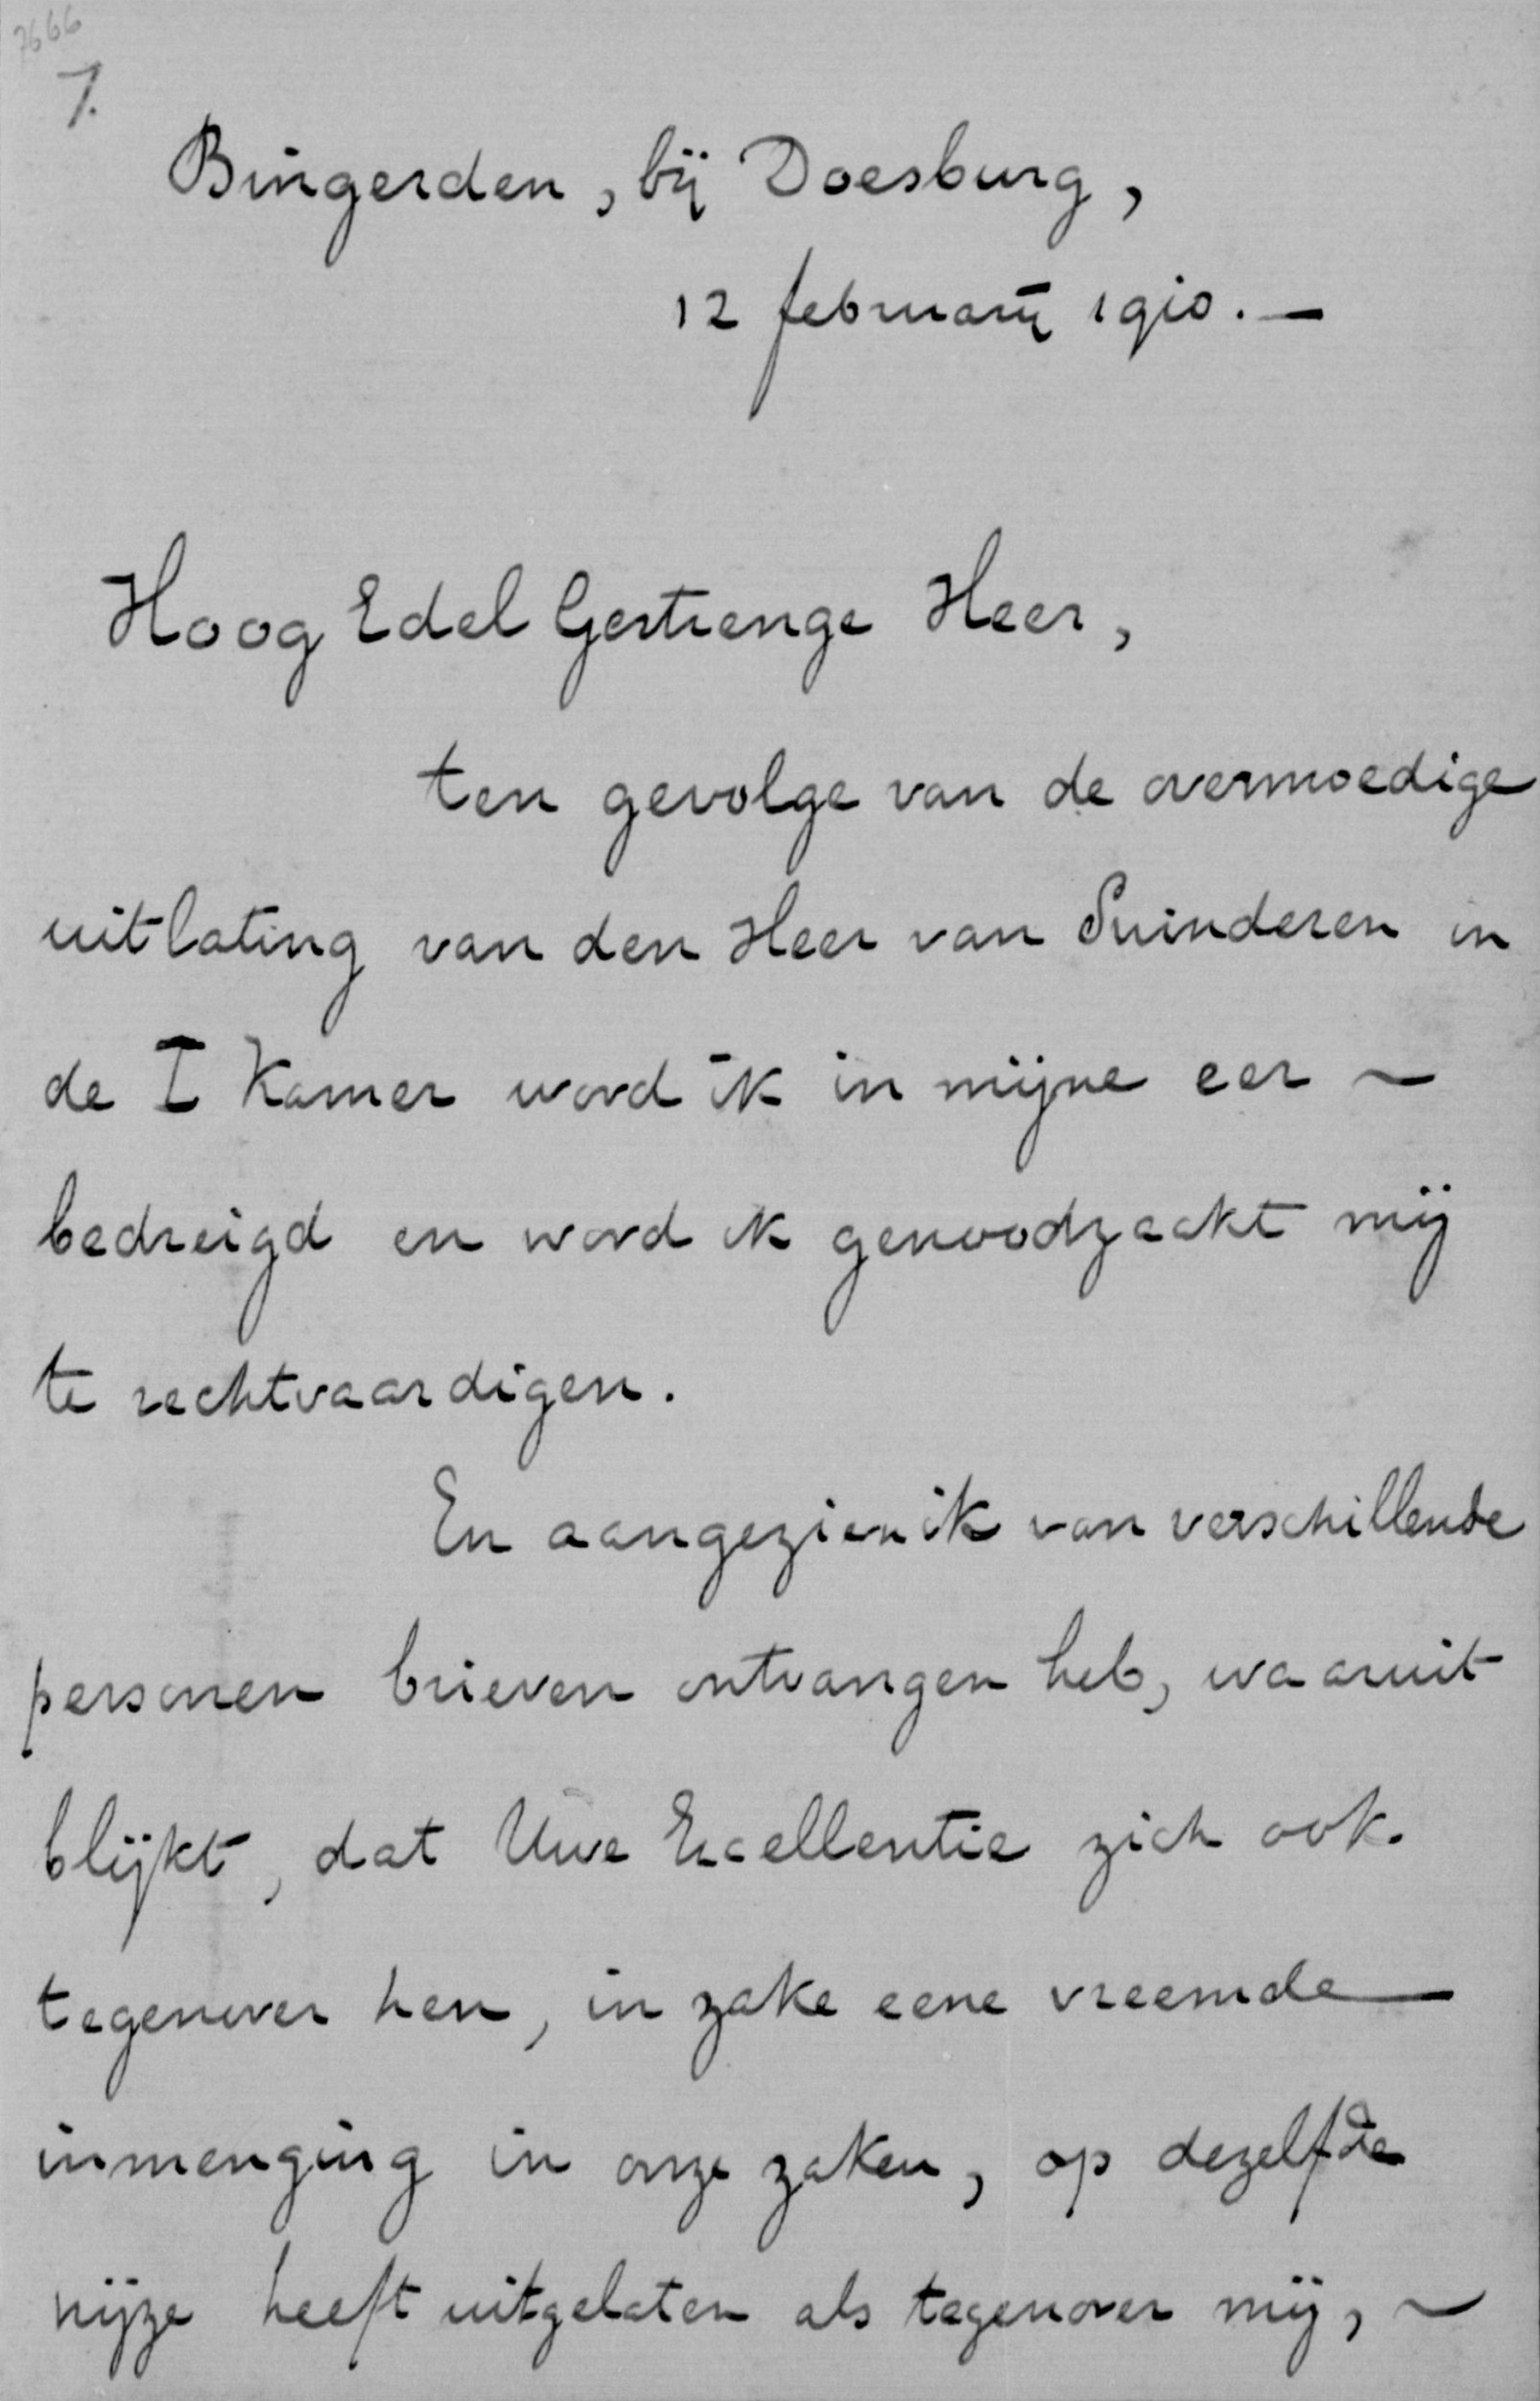 7666
7.
Bingerden, bij Doesburg,
12 februarij 1910. —
Hoog Edel Gestrenge Heer,
ten gevolge van de overmoedige
uitlating van den Heer van Swinderen in
de I Kamer word ik in mijne eer ~
bedreigd en word ik genoodzaakt mij
te rechtvaardigen.
En aangezien ik van verschillende
personen brieven ontvangen heb, waaruit
blijkt, dat Uwe Excellentie zich ook
tegenover hen, in zake eene vreemde —
inmenging in onze zaken, op dezelfde
wijze heeft uitgelaten als tegenover mij, ~